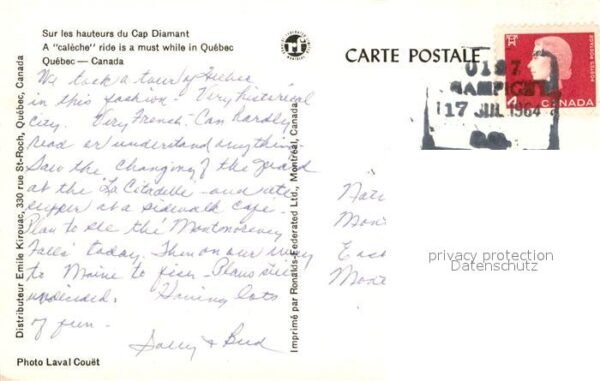 Sur les hauteurs du Cap Diamant
A "calèche" ride is a must while in Québec
Québec — Canada
We took a tour of Quebec
in this fashion. Very historical
city. Very French. Can hardly
read or understand anything.
Saw the changing of the guard
at the "La Citadelle" and ate
supper at a sidewalk cafe.
Plan to see the Montmorency
Falls today. Then on our way
to Maine to fish. Plans still
undecided. Having lots
of fun.
Sally & Bud
Photo Laval Couët
Distributeur Emile Kirouac, 330 rue St-Roch, Québec, Canada
Imprimé par Ronalds-Federated Ltd., Montréal, Canada
CARTE POSTALE
17 JUL 1964
4
CANADA
POSTAGE POSTES
Mont
East
Mont
privacy protection
Datenschutz